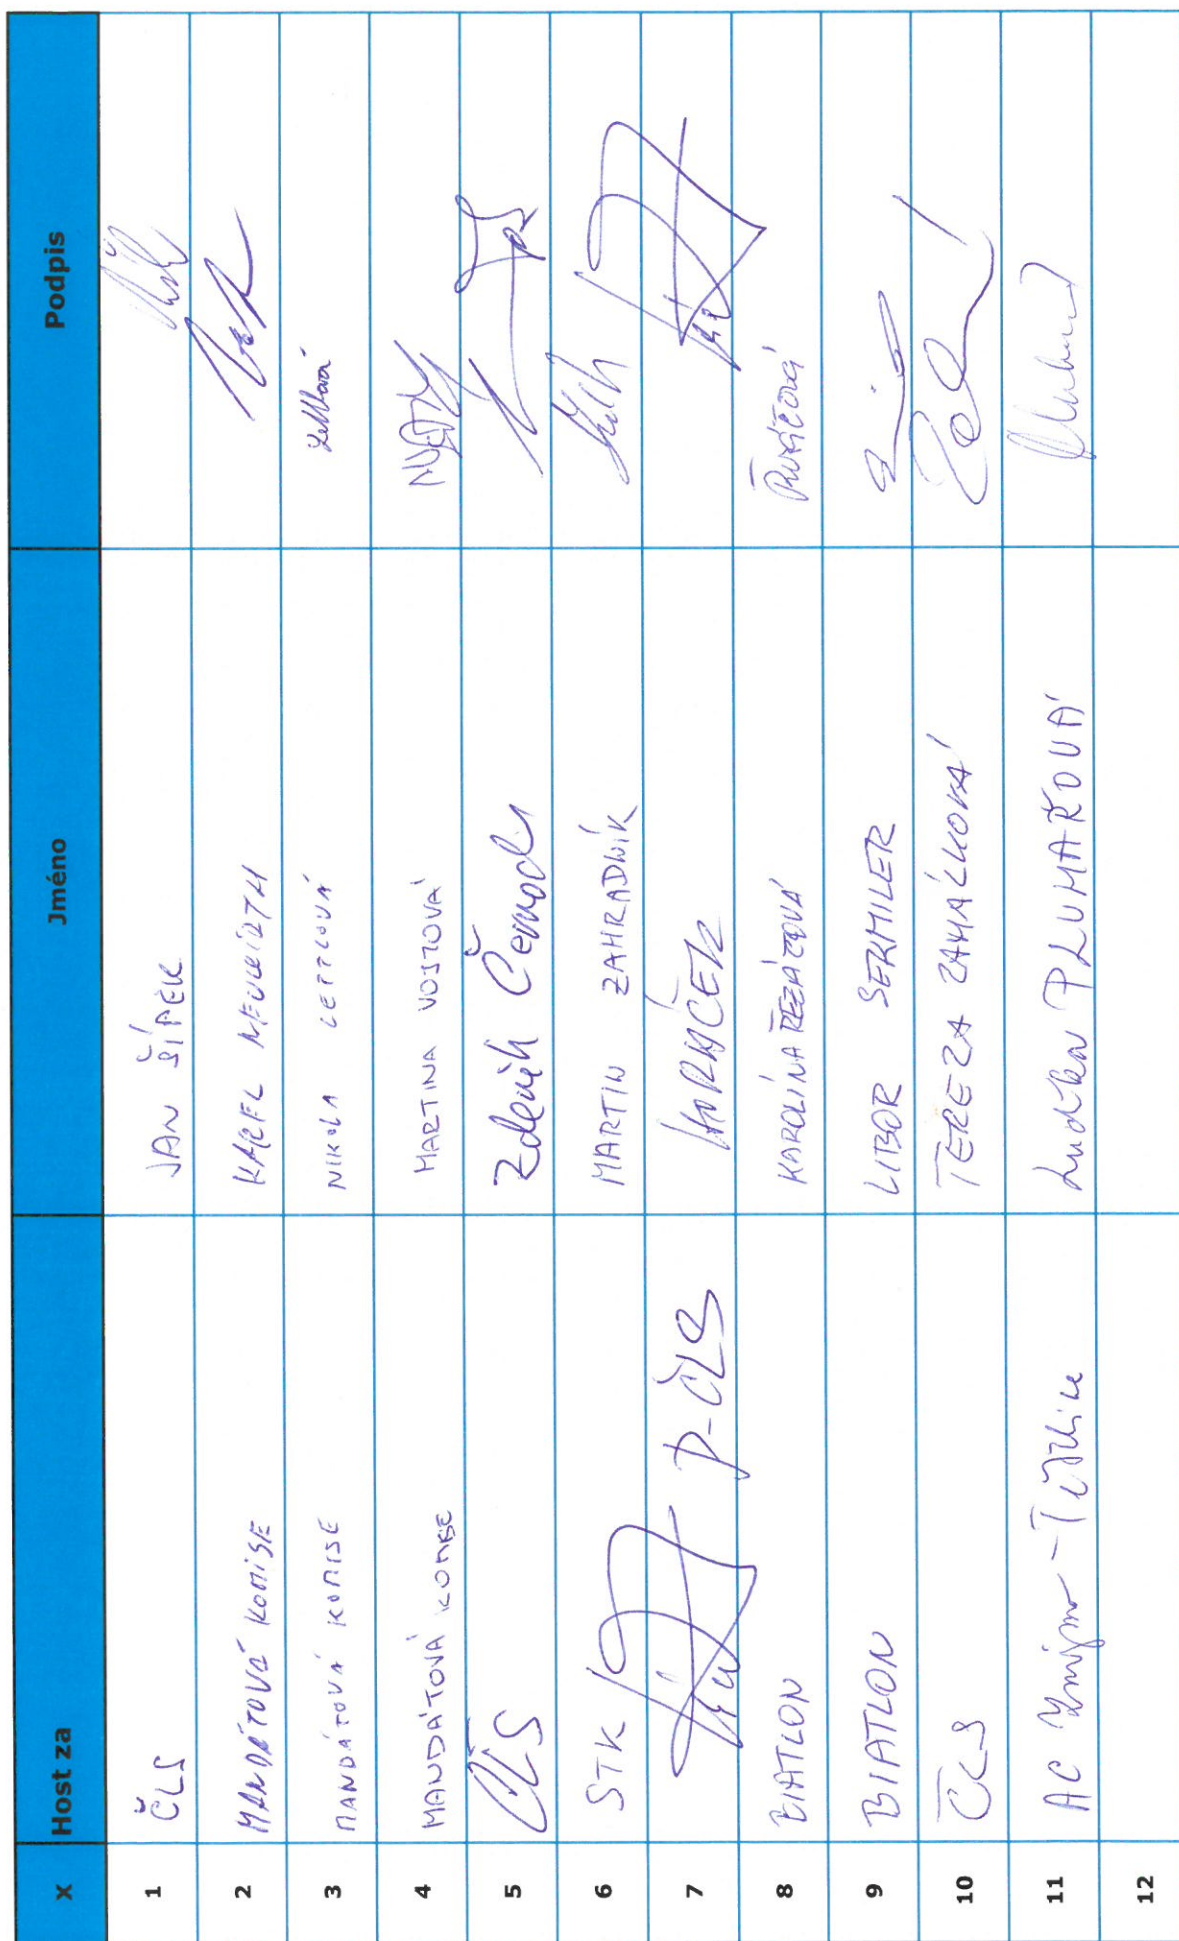 X Host za Jméno Podpis
1 ČLS JAN ŠÍPEK
2 MANDÁTOVÁ KOMISE KAREL NEUWIRTH
3 MANDÁTOVÁ KOMISE NIKOLA LETTLOVÁ Lettlová
4 MANDÁTOVÁ KOMISE MARTINA VOJTOVÁ
5 ČLS Zdeněk Černoch
6 STK MARTIN ZAHRADNÍK
7 P-ČLS HORÁČEK
8 BIATLON KAROLÍNA ŘEZÁČOVÁ Řezáčová
9 BIATLON LIBOR SERMILER
10 ČLS TEREZA ZAHÁLKOVÁ
11 AC Luděka PLUHAŘOVÁ
12